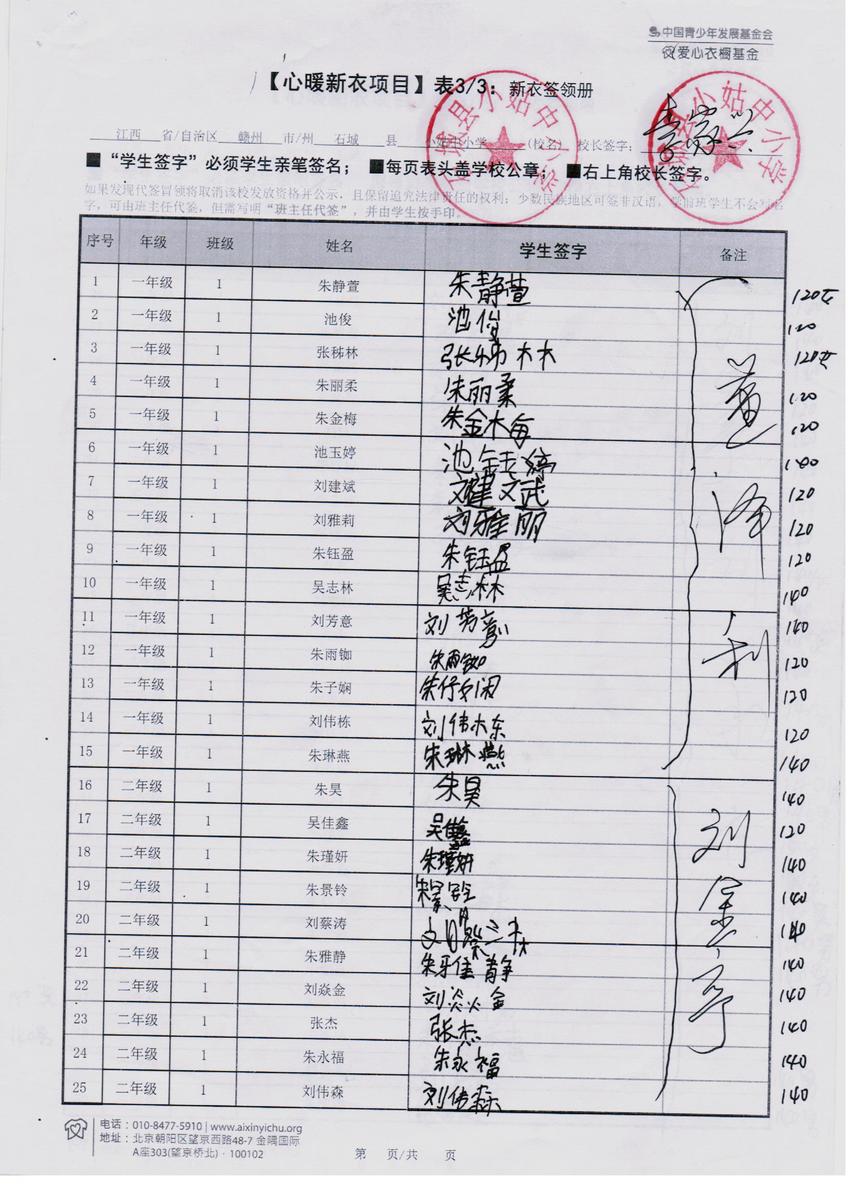 中国青少年发展基金会
爱心衣橱基金
【心暖新衣项目】表3/3：新衣签领册
江西 省/自治区 赣州 市/州 石城 县 小姑中小学 (校名) 校长签字：
■ “学生签字”必须学生亲笔签名； ■每页表头盖学校公章； ■右上角校长签字。
如果发现代签冒领将取消该校发放资格并公示，且保留追究法律责任的权利；少数民族地区可签非汉语，学前班学生不会写名
字，可由班主任代签，但需写明“班主任代签”，并由学生按手印。
序号 年级 班级 姓名 学生签字 备注
1 一年级 1 朱静萱 朱静萱 120
2 一年级 1 池俊 池俊 120
3 一年级 1 张秭林 张秭林 120
4 一年级 1 朱丽柔 朱丽柔 120
5 一年级 1 朱金梅 朱金梅 120
6 一年级 1 池玉婷 池
7 一年级 1 刘建斌 120
8 一年级 1 刘雅莉 120
9 一年级 1 朱钰盈 朱钰盈 120
10 一年级 1 吴志林 吴志林 140
11 一年级 1 刘芳意 刘芳意 140
12 一年级 1 朱雨铷 朱雨铷 120
13 一年级 1 朱子娴 120
14 一年级 1 刘伟栋 刘伟栋 120
15 一年级 1 朱琳燕 朱琳燕 140
16 二年级 1 朱昊 朱昊 140
17 二年级 1 吴佳鑫 吴佳鑫 120
18 二年级 1 朱瑾妍 朱瑾妍 140
19 二年级 1 朱景铃 140
20 二年级 1 刘蔡涛 140
21 二年级 1 朱雅静 朱雅静 140
22 二年级 1 刘焱金 刘焱金 140
23 二年级 1 张杰 张杰 140
24 二年级 1 朱永福 朱永福 140
25 二年级 1 刘伟森 刘伟森 140
电话：010-8477-5910 | www.aixinyichu.org
地址：北京朝阳区望京西路48-7 金隅国际
A座303(望京桥北)·100102
第 页/共 页